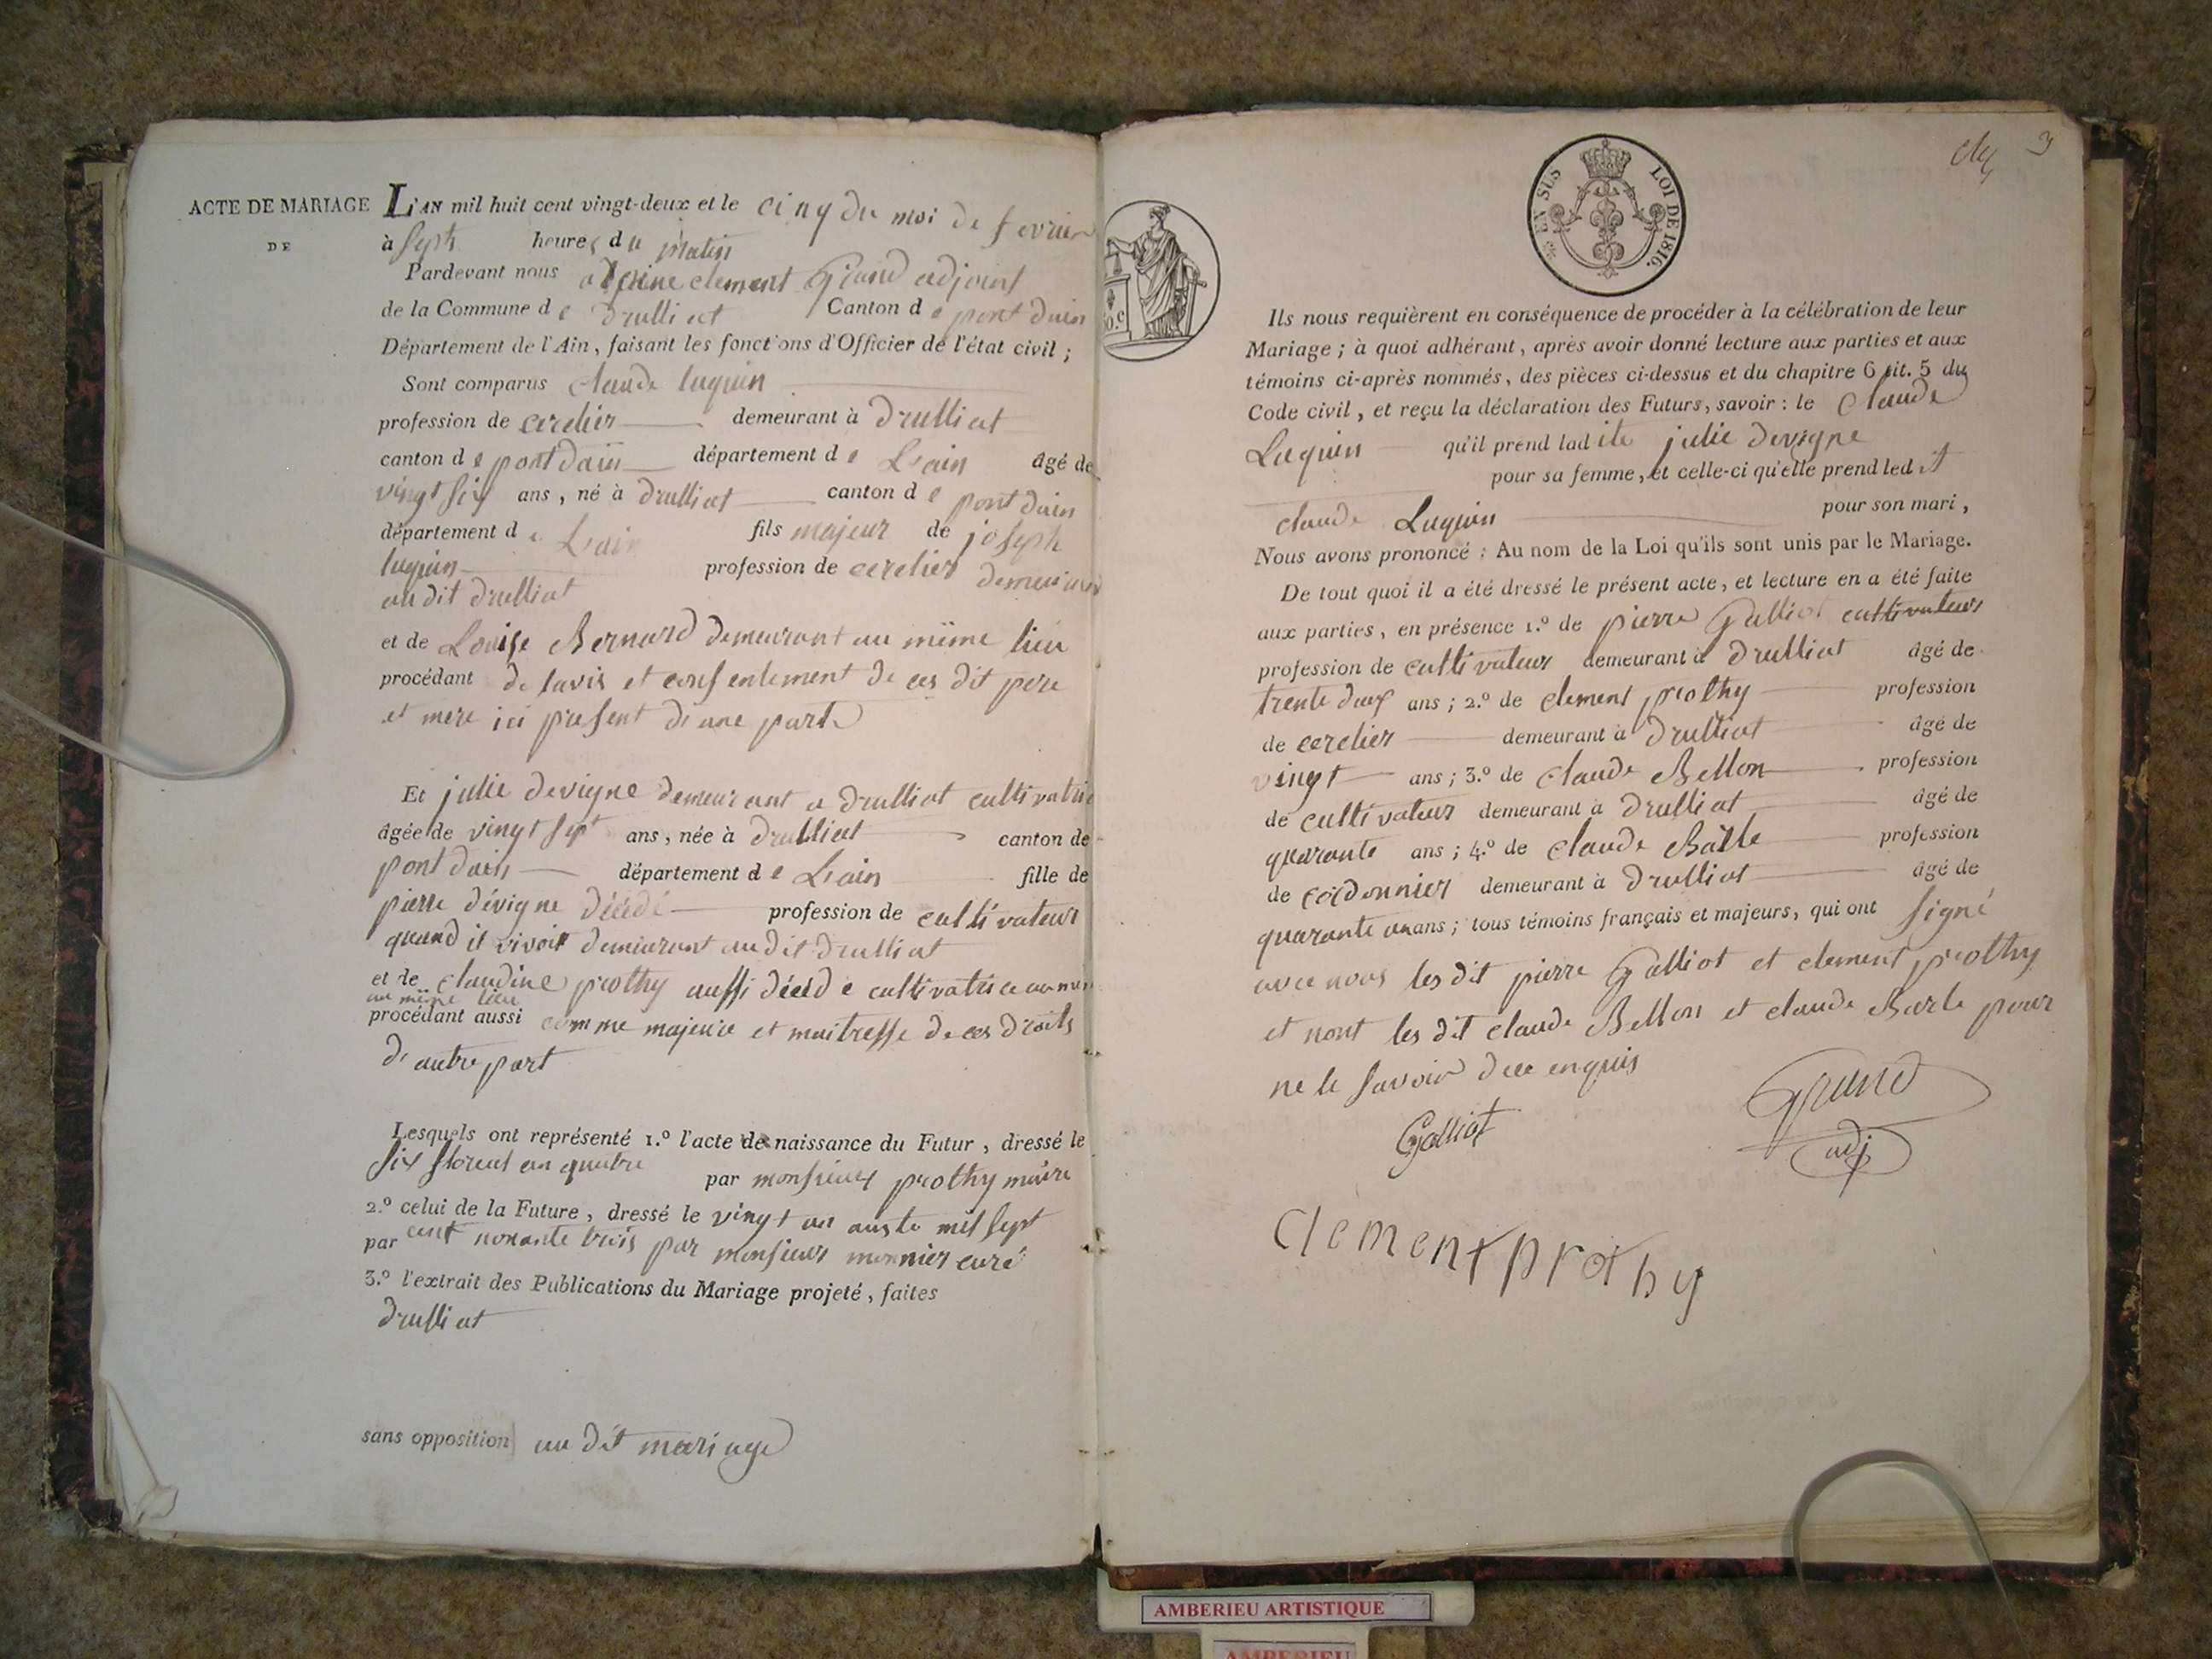 ACTE DE MARIAGE
DE
L'AN mil huit cent vingt-deux et le cinq du moi de fevrier
à sept heures du matin
Pardevant nous clement Grand adjoint
de la Commune de drulliat Canton de pont dain
Département de l'Ain, faisant les fonctions d'Officier de l'état civil;
Sont comparus claude luquin
profession de cerclier demeurant à drulliat
canton de pont dain département de L'ain âgé de
vingt six ans, né à drulliat canton de pont dain
département de L'ain fils majeur de joseph
luquin profession de cerclier demeurant
au dit drulliat
et de Louise Bernard demeurant au même lieu
procédant de lavis et consentement de ces dit pere
et mere ici present d'une part
Et julie devigne demeurant a drulliat cultivatrice
âgée de vingt sept ans, née à drulliat canton de
pont dain département de L'ain fille de
pierre dévigne décédé profession de cultivateur
quand il vivoit demeurant au dit drulliat
et de claudine prothy aussi décédé cultivatrice
au même lieu
procédant aussi comme majeure et maitresse de ces droits
d'autre part
Lesquels ont représenté 1.º l'acte de naissance du Futur, dressé le
six floreal an quatre par monsieur prothy maire
2.º celui de la Future, dressé le vingt un auste mil sept
par cent nonante trois par monsieur monnier curé
3.º l'extrait des Publications du Mariage projeté, faites
drulliat
sans opposition au dit mariage
3
EN SUS
LOI DE 1816.
Ils nous requièrent en conséquence de procéder à la célébration de leur
Mariage; à quoi adhérant, après avoir donné lecture aux parties et aux
témoins ci-après nommés, des pièces ci-dessus et du chapitre 6 tit. 5 du
Code civil, et reçu la déclaration des Futurs, savoir: le claude
Luquin qu'il prend ladite julie devigne
pour sa femme, et celle-ci qu'elle prend ledit
claude Luquin pour son mari,
Nous avons prononcé: Au nom de la Loi qu'ils sont unis par le Mariage.
De tout quoi il a été dressé le présent acte, et lecture en a été faite
aux parties, en présence 1.º de pierre Galliot cultivateur
profession de cultivateur demeurant à drulliat âgé de
trente deux ans; 2.º de clement prothy profession
de cerclier demeurant à drulliat âgé de
vingt ans; 3.º de claude Bellon profession
de cultivateur demeurant à drulliat âgé de
quarante ans; 4.º de claude profession
de cordonnier demeurant à drulliat âgé de
quarante un ans; tous témoins français et majeurs, qui ont signé
avec nous les dit pierre Galliot et clement prothy
et nont les dit claude Bellon et claude pour
ne le savoir enquis
Galliot
Grand
adj
clement prothy
AMBERIEU ARTISTIQUE
AMBERIEU